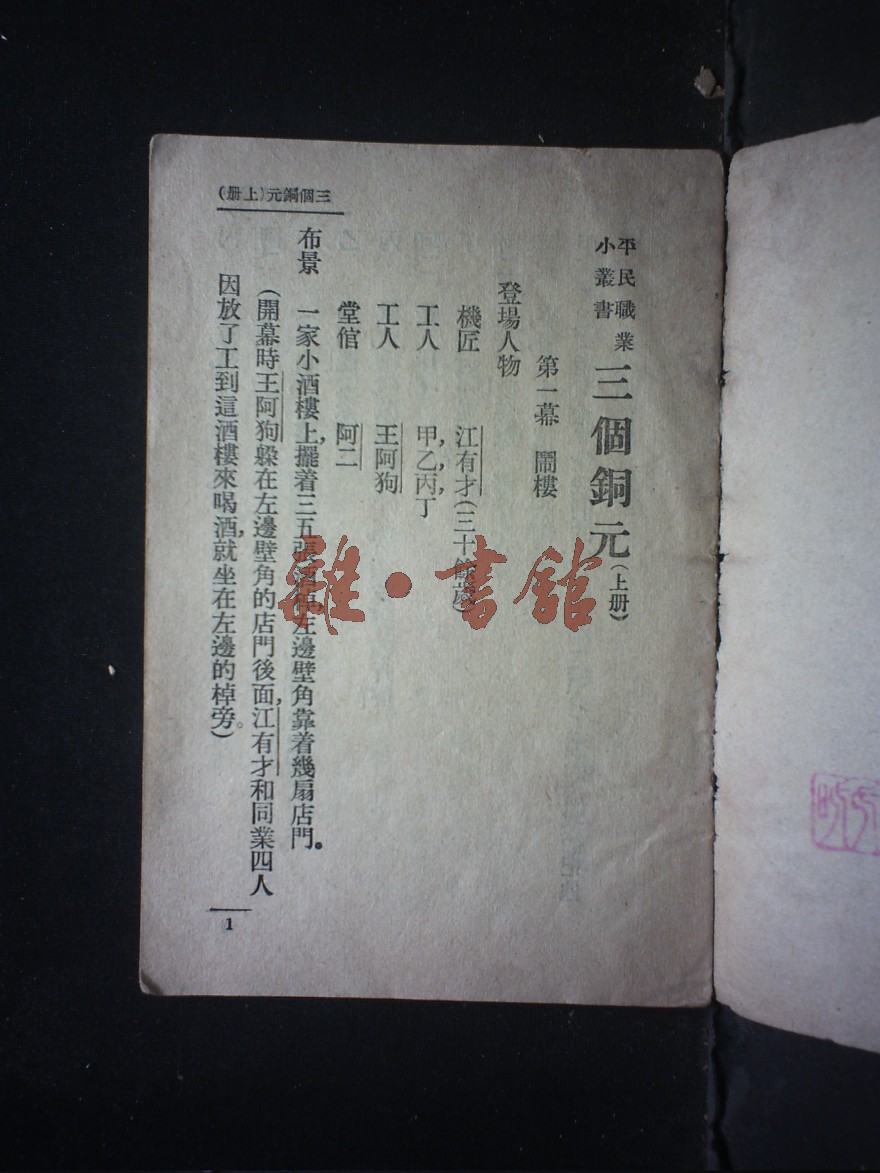 平民職業
小叢書
三個銅元(上册)
第一幕　鬧樓
登場人物
機匠　江有才(三十餘歲)
工人　甲,乙,丙,丁
工人　王阿狗
堂倌　阿二
布景　一家小酒樓上,擺着三五張酒棹,左邊壁角靠着幾扇店門。
(開幕時王阿狗躲在左邊壁角的店門後面,江有才和同業四人
因放了工到這酒樓來喝酒,就坐在左邊的棹旁。)
三個銅元(上册)
1
雜·書館